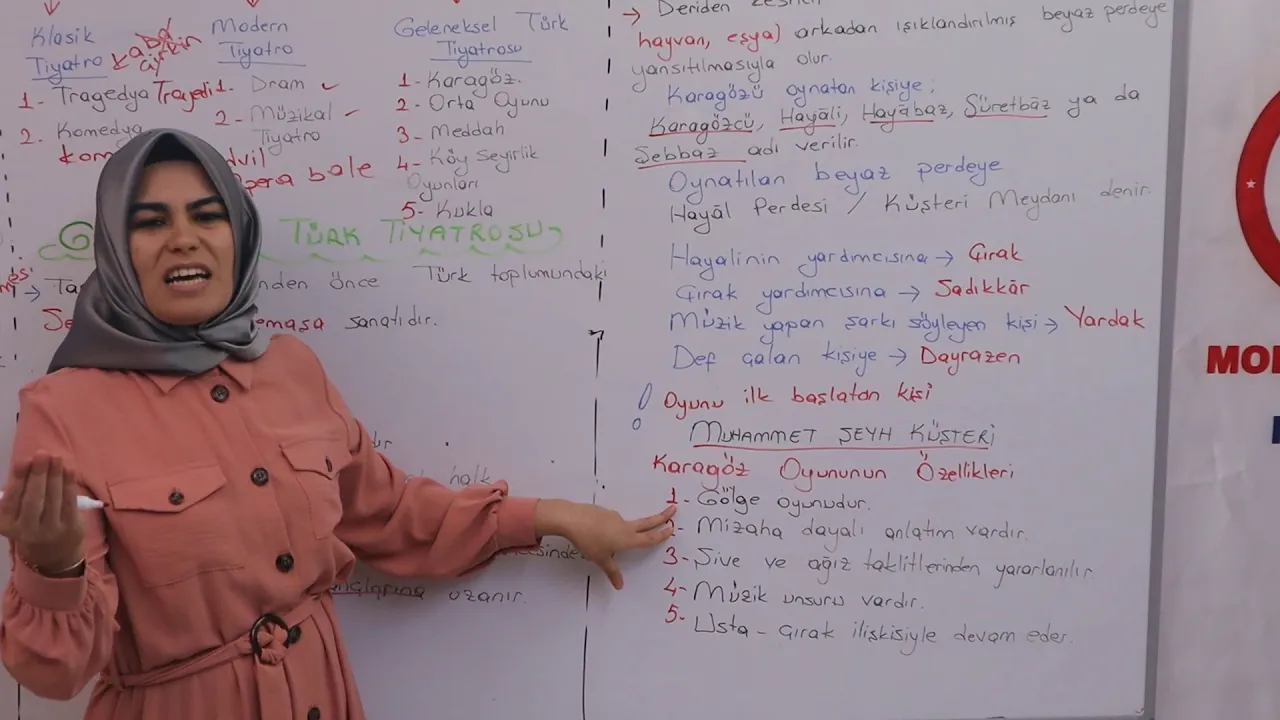 Klasik
Tiyatro
kaba
çirkin
1- Tragedya Trajedi
2. Komedya
kom
dvil
Modern
Tiyatro
1- Dram
2- Müzikal
Tiyatro
Opera bale
Geleneksel Türk
Tiyatrosu
1- Karagöz.
2- Orta Oyunu
3- Meddah
4- Köy Seyirlik
Oyunları
5- Kukla
G TÜRK TİYATROSU
→ Ta nden önce Türk toplumundaki
Se emaşa sanatıdır.
halk
uzanır.
→ Deriden
hayvan, eşya) arkadan ışıklandırılmış beyaz perdeye
yansıtılmasıyla olur.
Karagözü oynatan kişiye;
Karagözcü, Hayâli, Hayâbaz, Sûretbâz ya da
Şebbaz adı verilir.
Oynatılan beyaz perdeye
Hayâl Perdesi / Küşteri Meydanı denir.
Hayalinin yardımcısına → Çırak
Çırak yardımcısına → Sadıkkâr
Müzik yapan şarkı söyleyen kişi → Yardak
Def çalan kişiye → Dayrazen
! Oyunu ilk başlatan kişi
MUHAMMET ŞEYH KÜŞTERİ
Karagöz Oyununun Özellikleri
1- Gölge oyunudur.
2- Mizaha dayalı anlatım vardır.
3- Şive ve ağız taklitlerinden yararlanılır
4- Müzik unsuru vardır.
5- Usta - çırak ilişkisiyle devam eder.
MOD